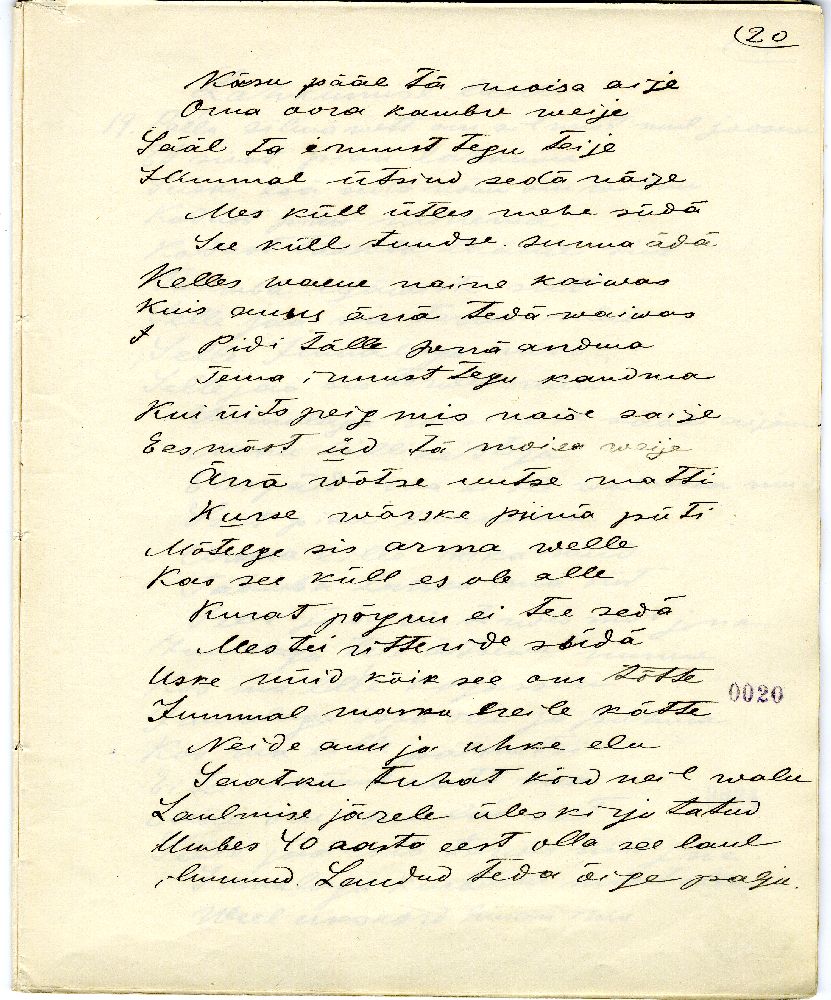 (20
Käsu pääl tä moisa aije
Oma oora kambre weije
Sääl ta ennust tegu teije
Jummal ütsind sedä näije
Mes küll ütles mehe südä
See küll tundse. sunna ädä
Kelles waene naine kaiwas
Kuis anus ärrä tedä waiwas
Pidi tälle perrä andma
Tema innust tegu kandma
Kui nüts peig mis naise saije
Eesmält üd tä moisa weije
Ärrä wõtse uutse matti
Kurse wärske piimä püti
Mõtelge sis arma welle
Kas see küll es ole alle
Kurat põrgun ei tee sedä
Mes tei ritteride südä
Uske nüid kõik see om tõtte
Jummal masku neile kätte
Neide auu ja uhke elu
Saatku tuhat kõrd neil walu
0020
Laulmise järele üleskirjutatud
Umbes 40 aasta eest olla see laul
ilmunud. Lauldud teda õige palju.